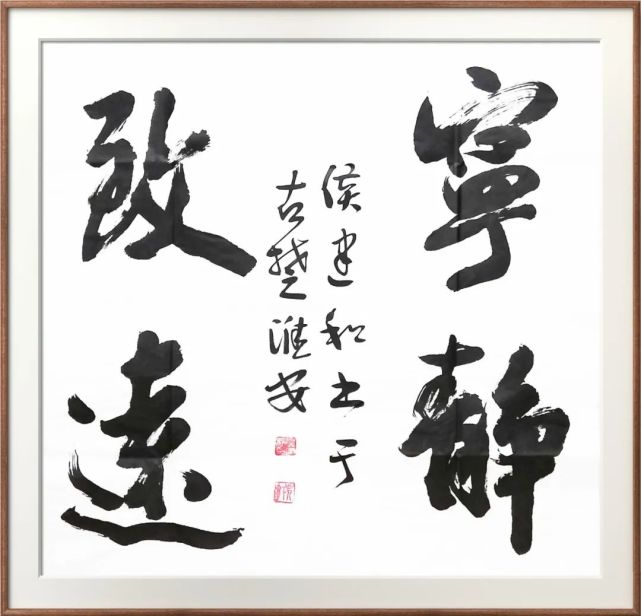 寧靜
致遠
侯建和書于
古楚淮安